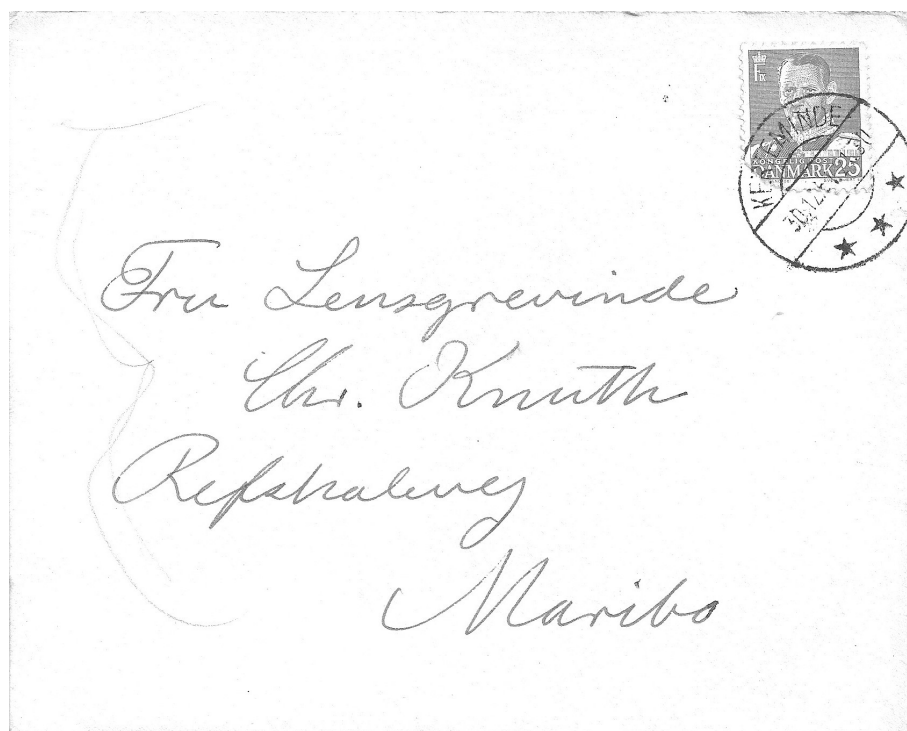 F IX
KONGELIG POST
DANMARK 25
KERTEMINDE
30.12.
Fru Lensgrevinde
Chr. Knuth
Refshalevej
Maribo